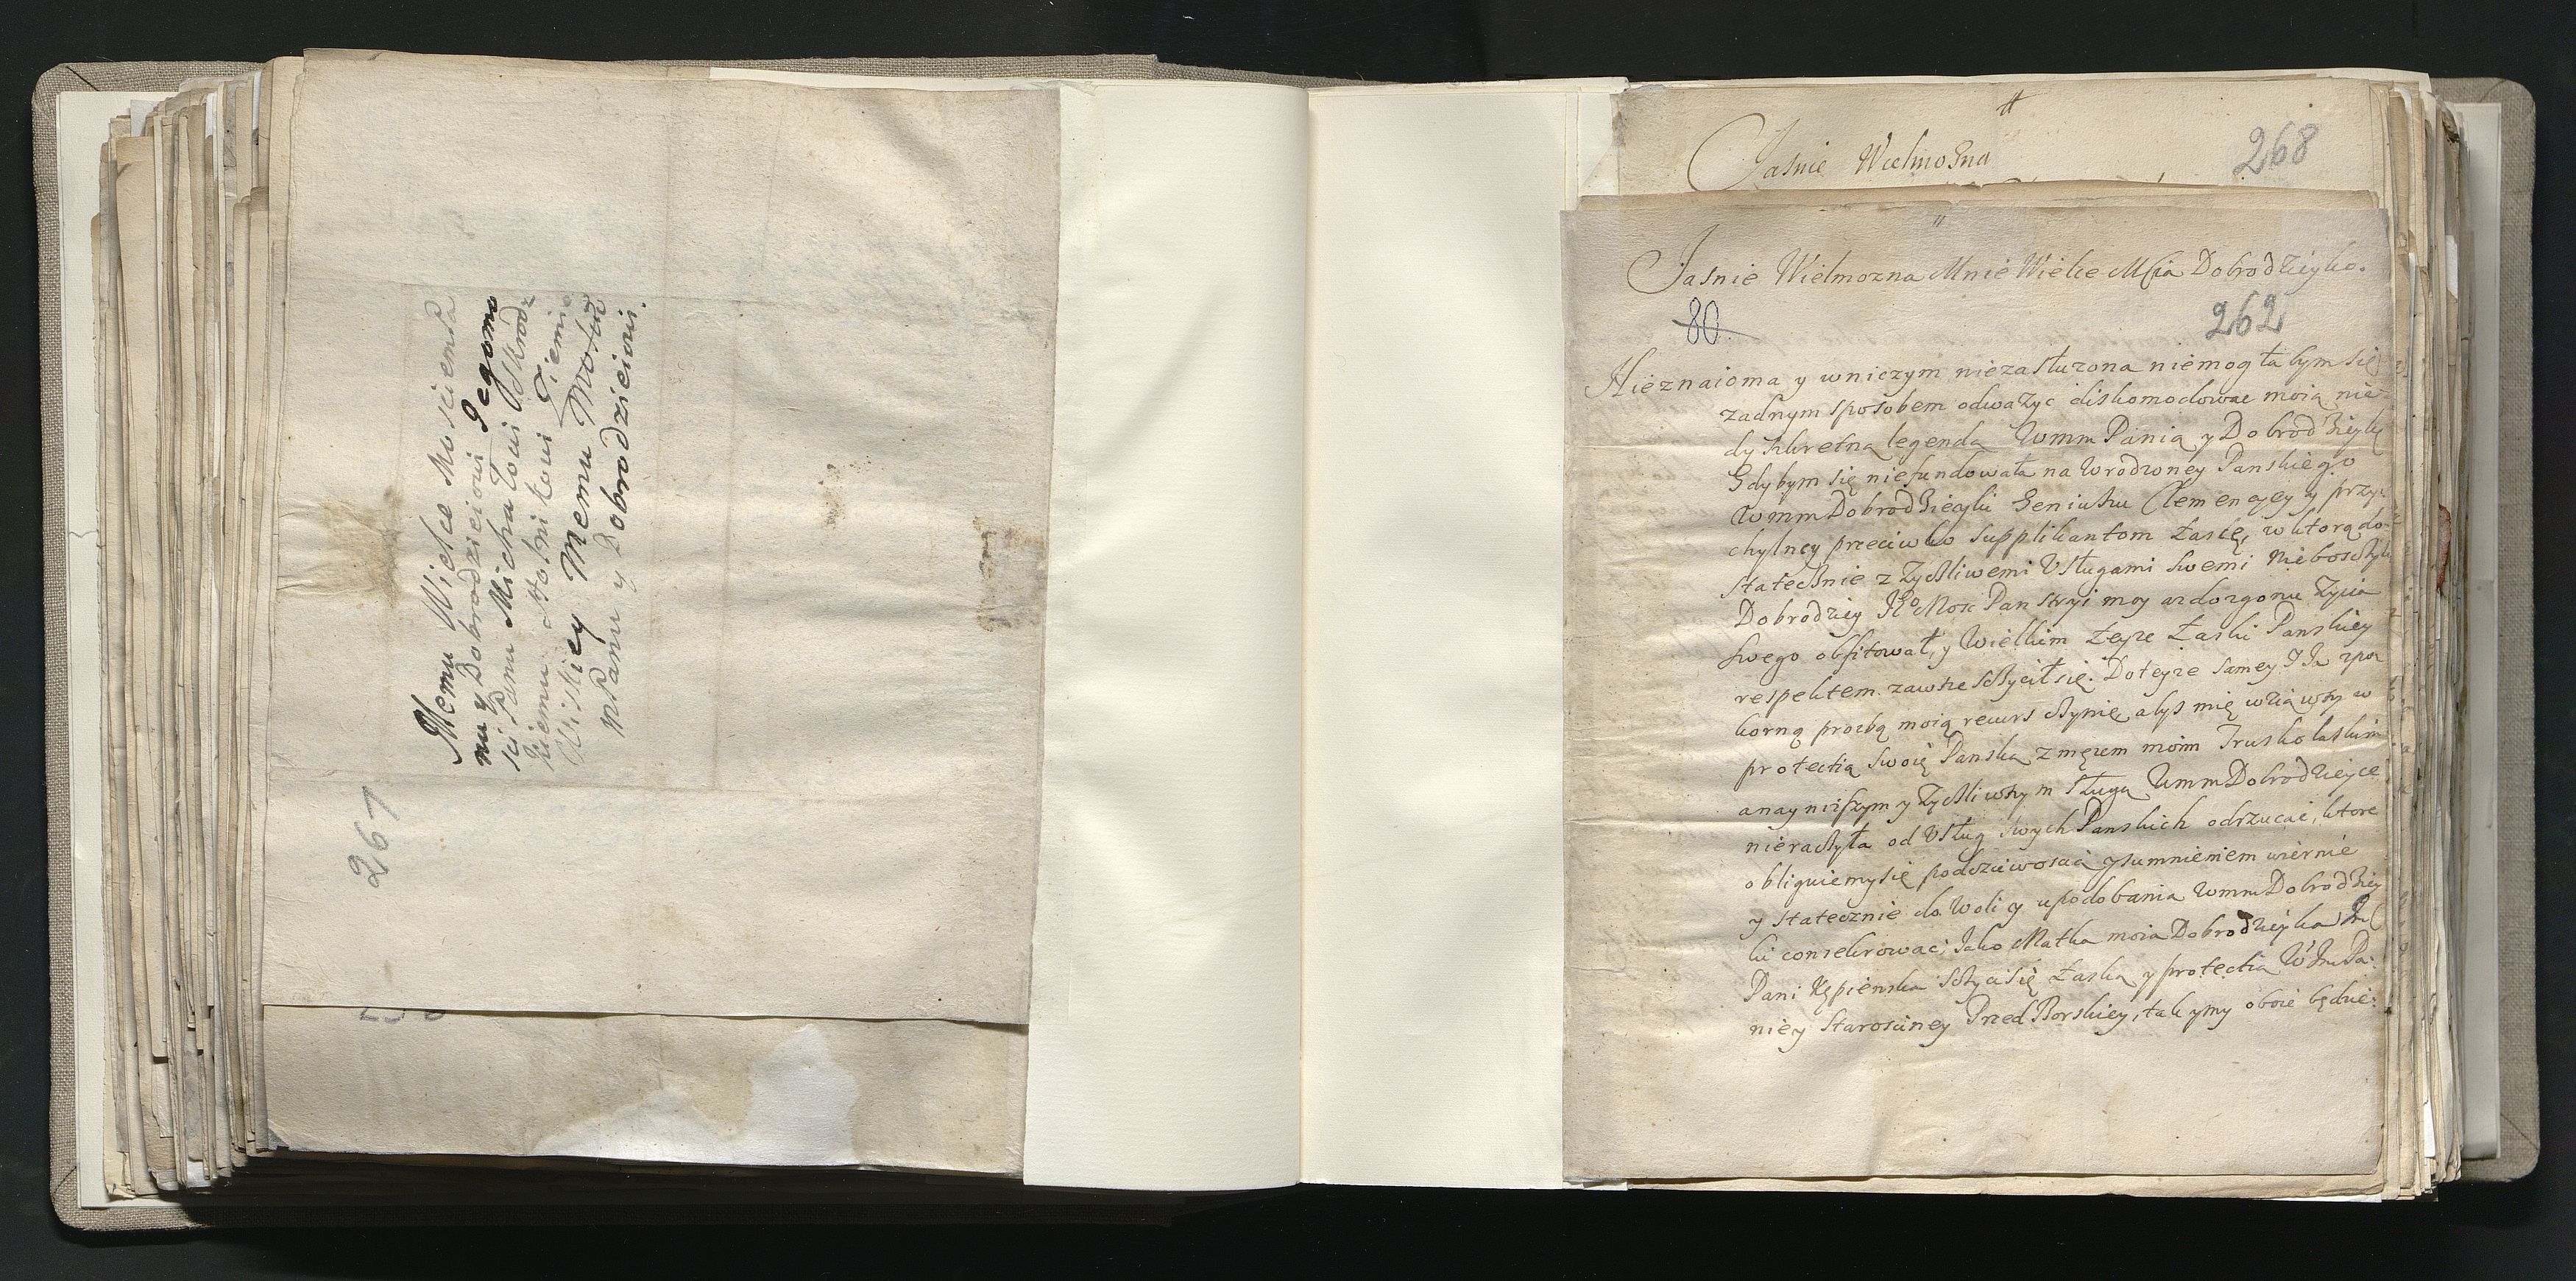 Memu Wielce Mosciemu Pa
nu y Dobrodzieiowi Jegomo
sci Panu Michałowi
kiemu Stolnikowi Ziemie
Memu Mosciw
Panu y Dobrodzieiowi.
267
Jasnie Wielmożna
268
Jasnie Wielmozna Mnie Wielce Mscia Dobrodzieyko.
80.
262
Nieznaioma y wniczym niezasłuzona niemogła bym się
zadnym sposobem odwazyc diskomodowac moią nie-
dyskretną legendą Wmm Panią y Dobrodzieykę
Gdybym się niefundowała na Wrodzoney Panskiego
Wmm Dobrodzieyki Geniuszu Clemencyey y przy-
chylney przeciwko supplikantom Łasce, w ktorą do-
statecznie z Zyczliwemi Usługami swemi Nieboszczyk
Dobrodziey JEo Mosc Pan Stryi moy az do zgonu Zycia
swego obfitował, y Wielkim teyze Łaski Panskiey
respektem zawsze sczycił się. Do teyze samey I Ja zpo
korną prozbą moią recurs czynię, abys mię wziąwszy w
protectią swoię Panską z męzem moim Truskolaskim
anayniższym y Zyczliwszym sługą Wmm Dobrodzieyce
nieraczyła od Usług swych Panskich odrzucac, ktore
obliguiemysię podsciwoscią y sumnieniem wiernie
y statecznie do Woli y upodobania Wmm Dobrodziey
ki consekrowac; Jako Matka moia Dobrodzieyka Jm
Pani Kępienska sczyci się Łaską y protectią W Jm Pa-
niey Starosciney Przed Borskiey, tak ymy oboie będzie-